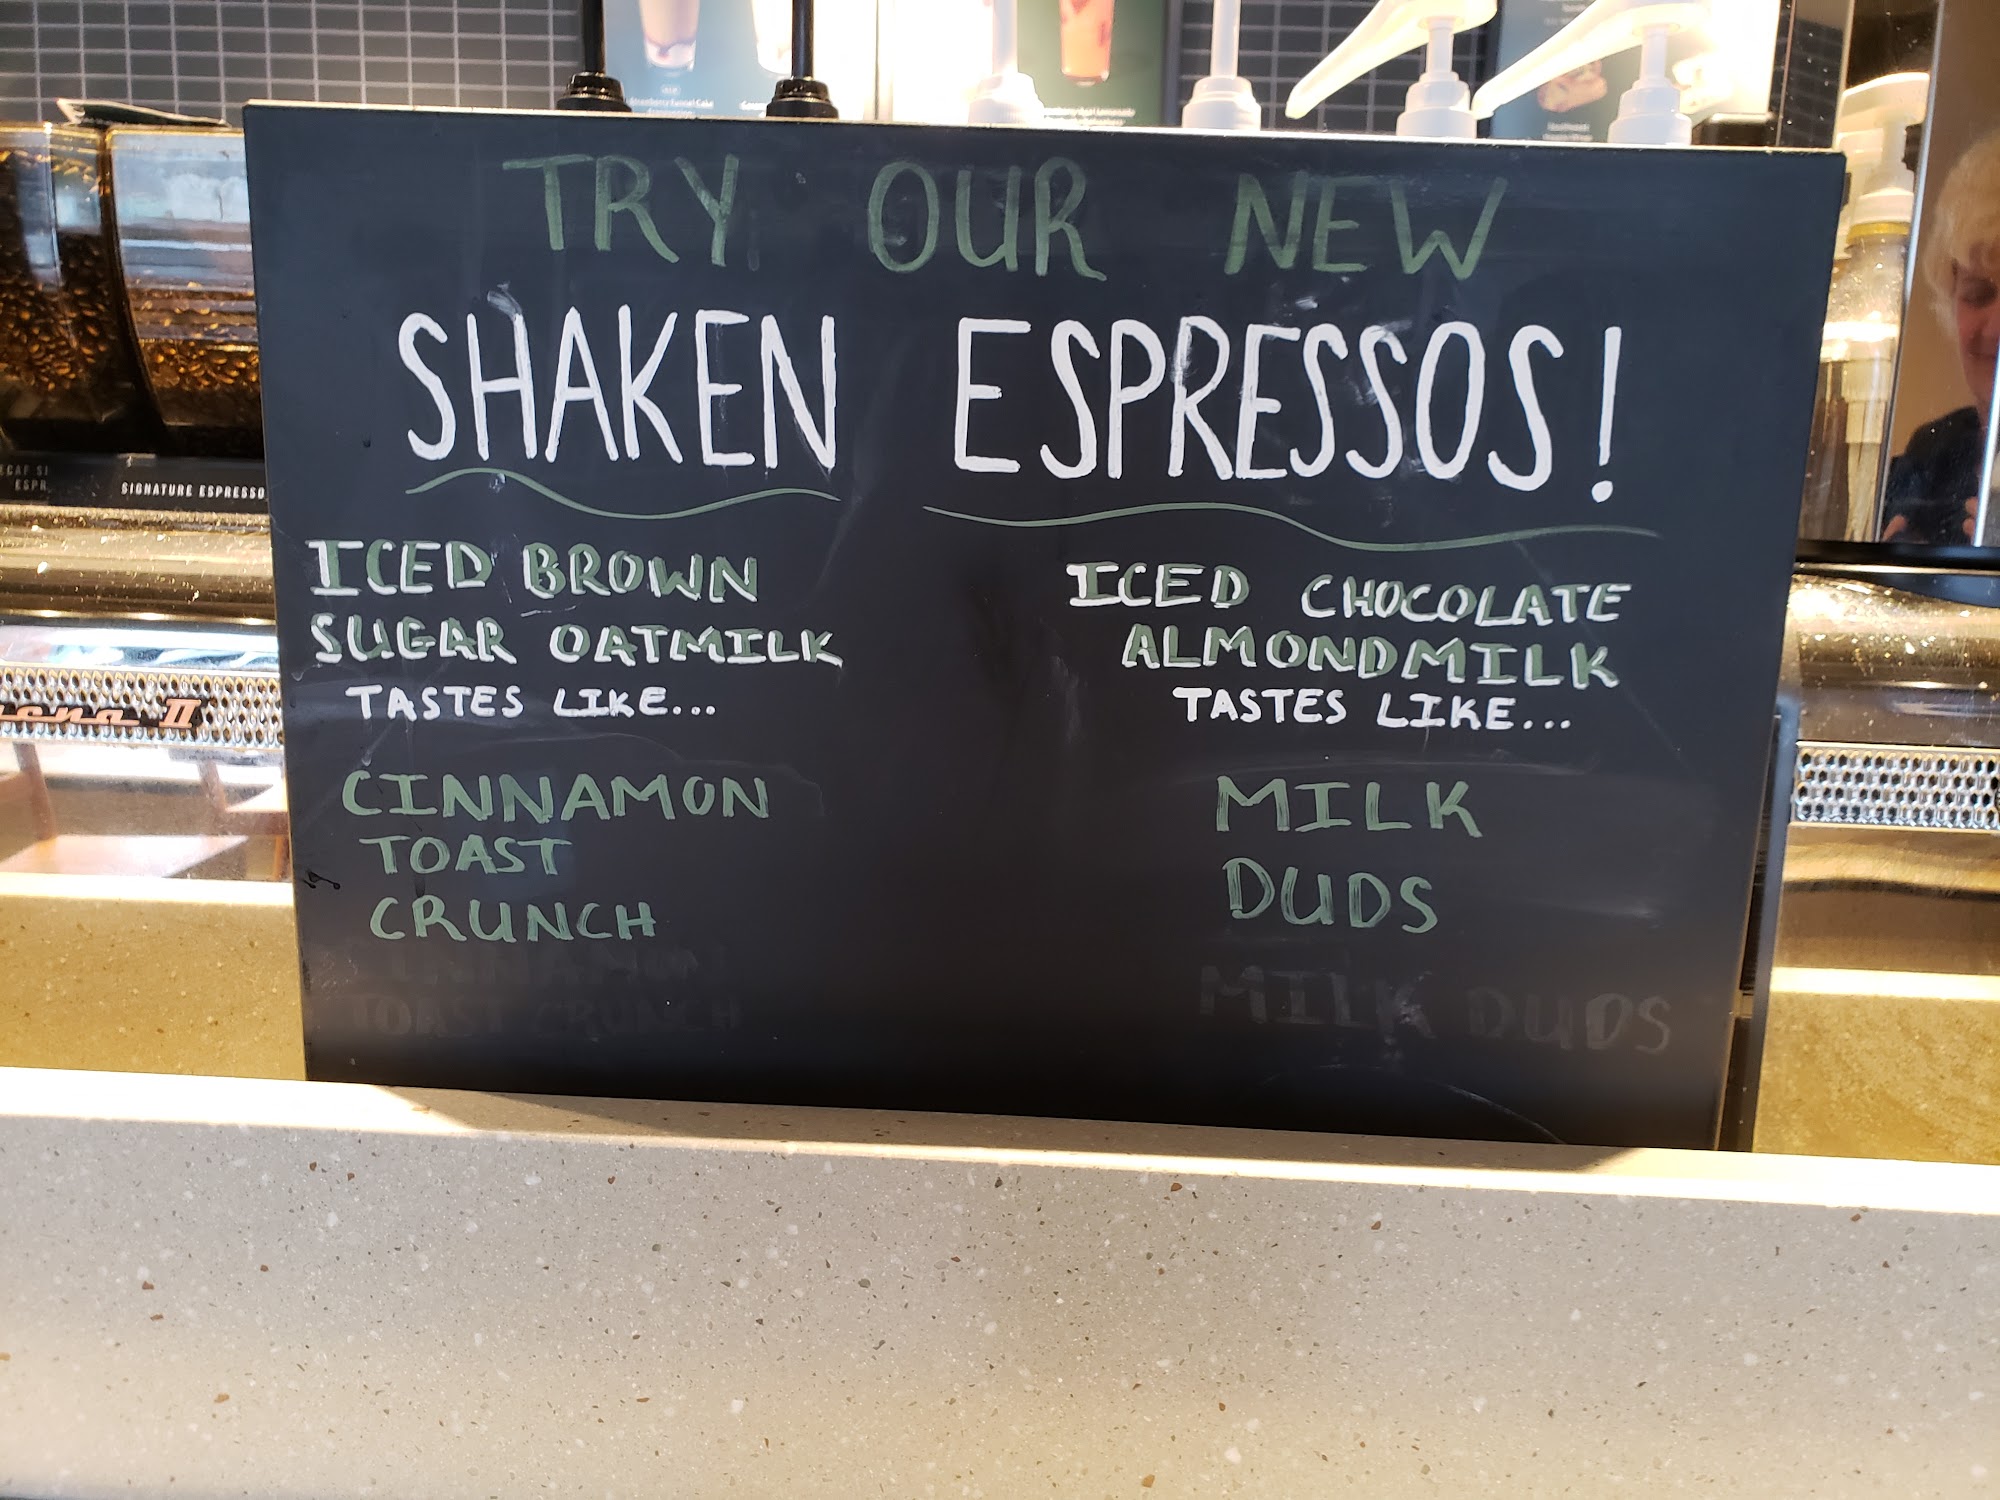 TRY OUR NEW
SHAKEN ESPRESSOS!
ICED BROWN
SUGAR OATMILK
TASTES LIKE...
CINNAMON
TOAST
CRUNCH
CINNAMON
TOAST CRUNCH
ICED CHOCOLATE
ALMONDMILK
TASTES LIKE...
MILK
DUDS
MILK DUDS
SIGNATURE ESPRESSO
ESPR
II
Strawberry Funnel Cake